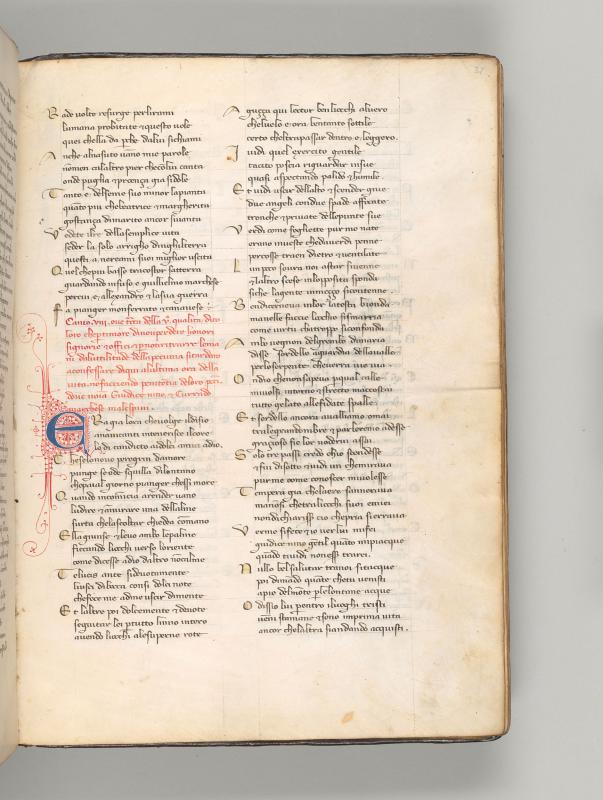 Rade volte resurge perli rami
lumana probitate & questo vole
quei chella da perche dalui sichiami
Anche alnasuto uanno mie parole
nomen cilaltro pier checollui canta
onde puglia & proenza gia sidole
Tanto e delseme suo minor lapianta
quanto piu chebeatrice & margherita
gostanza dimarito ancor siuanta
Vedete ilre dellasemplice uita
seder la solo arrigho dinghilterra
questi a nerami suoi miglior uscita
Quel chepiu basso tracostor satterra
guardando insuso e guillielmo marchese
percui e alexandro & lasua guerra
Fa pianger monferrato & canauese
Canto viii
Giudice nino, & Currado
marchese malespini
Era gia lora cheuolge ildisio
ainauicanti intenerisce ilcore
lodi candicto adolci amici adio
E chelonouo peregrin damore
punge seode squilla dilontano
chepaial giorno pianger chessi more
Quando incomincia arender uano
ludire & amirare una dellalme
surta chelascoltar chiedea comano
Ella giunse & leuo ambo lepalme
ficcando liocchi uerso loriente
come dicesse adio daltro noncalme
Te lucis ante si diuotamente
liusci dibocca consi dolci note
chefece me adme uscir dimente
Et laltre poi dolcemente & deuote
seguitar lei pertutto linno intero
auendo liocchi alesuperne rote
Aguzza qui lector ben liocchi aluero
cheluelo e ora bentanto sottile
certo cheltrapassar dentro e leggero
I uidi quel exercito gentile
tacito poscia riguardar insue
quasi aspectando palido & humile
Et uidi uscir dellalto & scender giue
due angeli condue spade affocate
tronche & priuate dellepunte sue
Verdi come fogliette pur mo nate
erano inueste chedauerdi penne
percosse traen dietro & uentilate
Lun poco soura noi astar siuenne
& laltro scese inlopposita sponda
siche lagente inmezzo sicontenne
Bendiscerneua inlor latesta bionda
manelle faccie locchio sismarria
come uirtu chatroppo siconfonda
Ambo uegnon delgrembo dimaria
disse Sordello aguardia dellaualle
perloserpente cheuerra uia uia
Ondio chenonsapeua perqual calle
muolsi intorno & stretto maccostai
tutto gelato allefidate spalle
Et sordello ancora aualliamo omai
tralegrandombre & parleremo adesse
gratioso fie lor uederui assai
Solo tre passi credo chio scendesse
& fui disotto & uidi un chemiraua
pur me come conoscer miuolesse
Temporera gia chelaere sanneraua
manonsi chetraliocchi suoi emiei
nondichiarisse cio chepria serraua
Verme sifece & io uer lui mifei
giudice nino gentil quanto mipiacque
quado tiuidi nonesser trarei
Nullo belsalutar tranoi sitacque
poi dimando quante chetu uenisti
apie delmonte perlelontane acque
O dissio lui pentro iluoghi tristi
ueni stamane & sono imprima uita
ancor chelaltra siandando acquisti